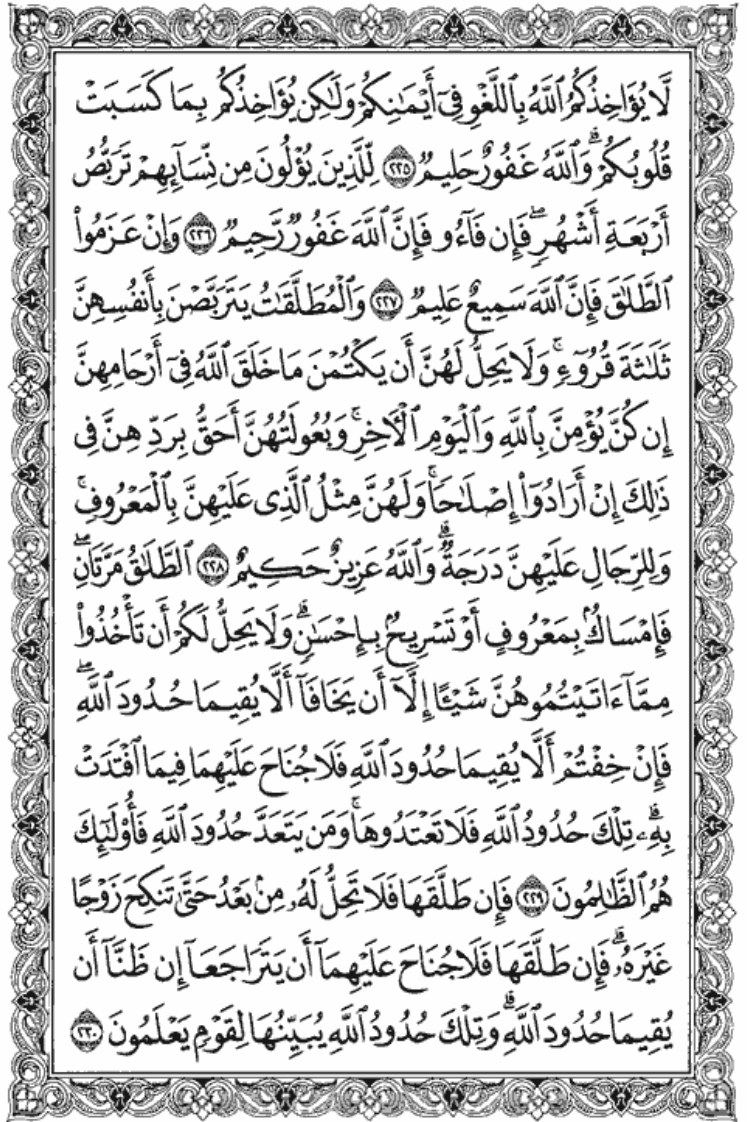 لَّا يُؤَاخِذُكُمُ ٱللَّهُ بِٱللَّغْوِ فِىٓ أَيْمَٰنِكُمْ وَلَٰكِن يُؤَاخِذُكُم بِمَا كَسَبَتْ
قُلُوبُكُمْ ۗ وَٱللَّهُ غَفُورٌ حَلِيمٌ ٢٢٥ لِّلَّذِينَ يُؤْلُونَ مِن نِّسَآئِهِمْ تَرَبُّصُ
أَرْبَعَةِ أَشْهُرٍ ۖ فَإِن فَآءُو فَإِنَّ ٱللَّهَ غَفُورٌ رَّحِيمٌ ٢٢٦ وَإِنْ عَزَمُوا۟
ٱلطَّلَٰقَ فَإِنَّ ٱللَّهَ سَمِيعٌ عَلِيمٌ ٢٢٧ وَٱلْمُطَلَّقَٰتُ يَتَرَبَّصْنَ بِأَنفُسِهِنَّ
ثَلَٰثَةَ قُرُوٓءٍ ۚ وَلَا يَحِلُّ لَهُنَّ أَن يَكْتُمْنَ مَا خَلَقَ ٱللَّهُ فِىٓ أَرْحَامِهِنَّ
إِن كُنَّ يُؤْمِنَّ بِٱللَّهِ وَٱلْيَوْمِ ٱلْءَاخِرِ ۚ وَبُعُولَتُهُنَّ أَحَقُّ بِرَدِّهِنَّ فِى
ذَٰلِكَ إِنْ أَرَادُوٓا۟ إِصْلَٰحًا ۚ وَلَهُنَّ مِثْلُ ٱلَّذِى عَلَيْهِنَّ بِٱلْمَعْرُوفِ ۚ
وَلِلرِّجَالِ عَلَيْهِنَّ دَرَجَةٌ ۗ وَٱللَّهُ عَزِيزٌ حَكِيمٌ ٢٢٨ ٱلطَّلَٰقُ مَرَّتَانِ ۖ
فَإِمْسَاكٌۢ بِمَعْرُوفٍ أَوْ تَسْرِيحٌۢ بِإِحْسَٰنٍ ۗ وَلَا يَحِلُّ لَكُمْ أَن تَأْخُذُوا۟
مِمَّآ ءَاتَيْتُمُوهُنَّ شَيْـًٔا إِلَّآ أَن يَخَافَآ أَلَّا يُقِيمَا حُدُودَ ٱللَّهِ ۖ
فَإِنْ خِفْتُمْ أَلَّا يُقِيمَا حُدُودَ ٱللَّهِ فَلَا جُنَاحَ عَلَيْهِمَا فِيمَا ٱفْتَدَتْ
بِهِۦ ۗ تِلْكَ حُدُودُ ٱللَّهِ فَلَا تَعْتَدُوهَا ۚ وَمَن يَتَعَدَّ حُدُودَ ٱللَّهِ فَأُو۟لَٰٓئِكَ
هُمُ ٱلظَّٰلِمُونَ ٢٢٩ فَإِن طَلَّقَهَا فَلَا تَحِلُّ لَهُۥ مِنۢ بَعْدُ حَتَّىٰ تَنكِحَ زَوْجًا
غَيْرَهُۥ ۗ فَإِن طَلَّقَهَا فَلَا جُنَاحَ عَلَيْهِمَآ أَن يَتَرَاجَعَآ إِن ظَنَّآ أَن
يُقِيمَا حُدُودَ ٱللَّهِ ۗ وَتِلْكَ حُدُودُ ٱللَّهِ يُبَيِّنُهَا لِقَوْمٍ يَعْلَمُونَ ٢٣٠